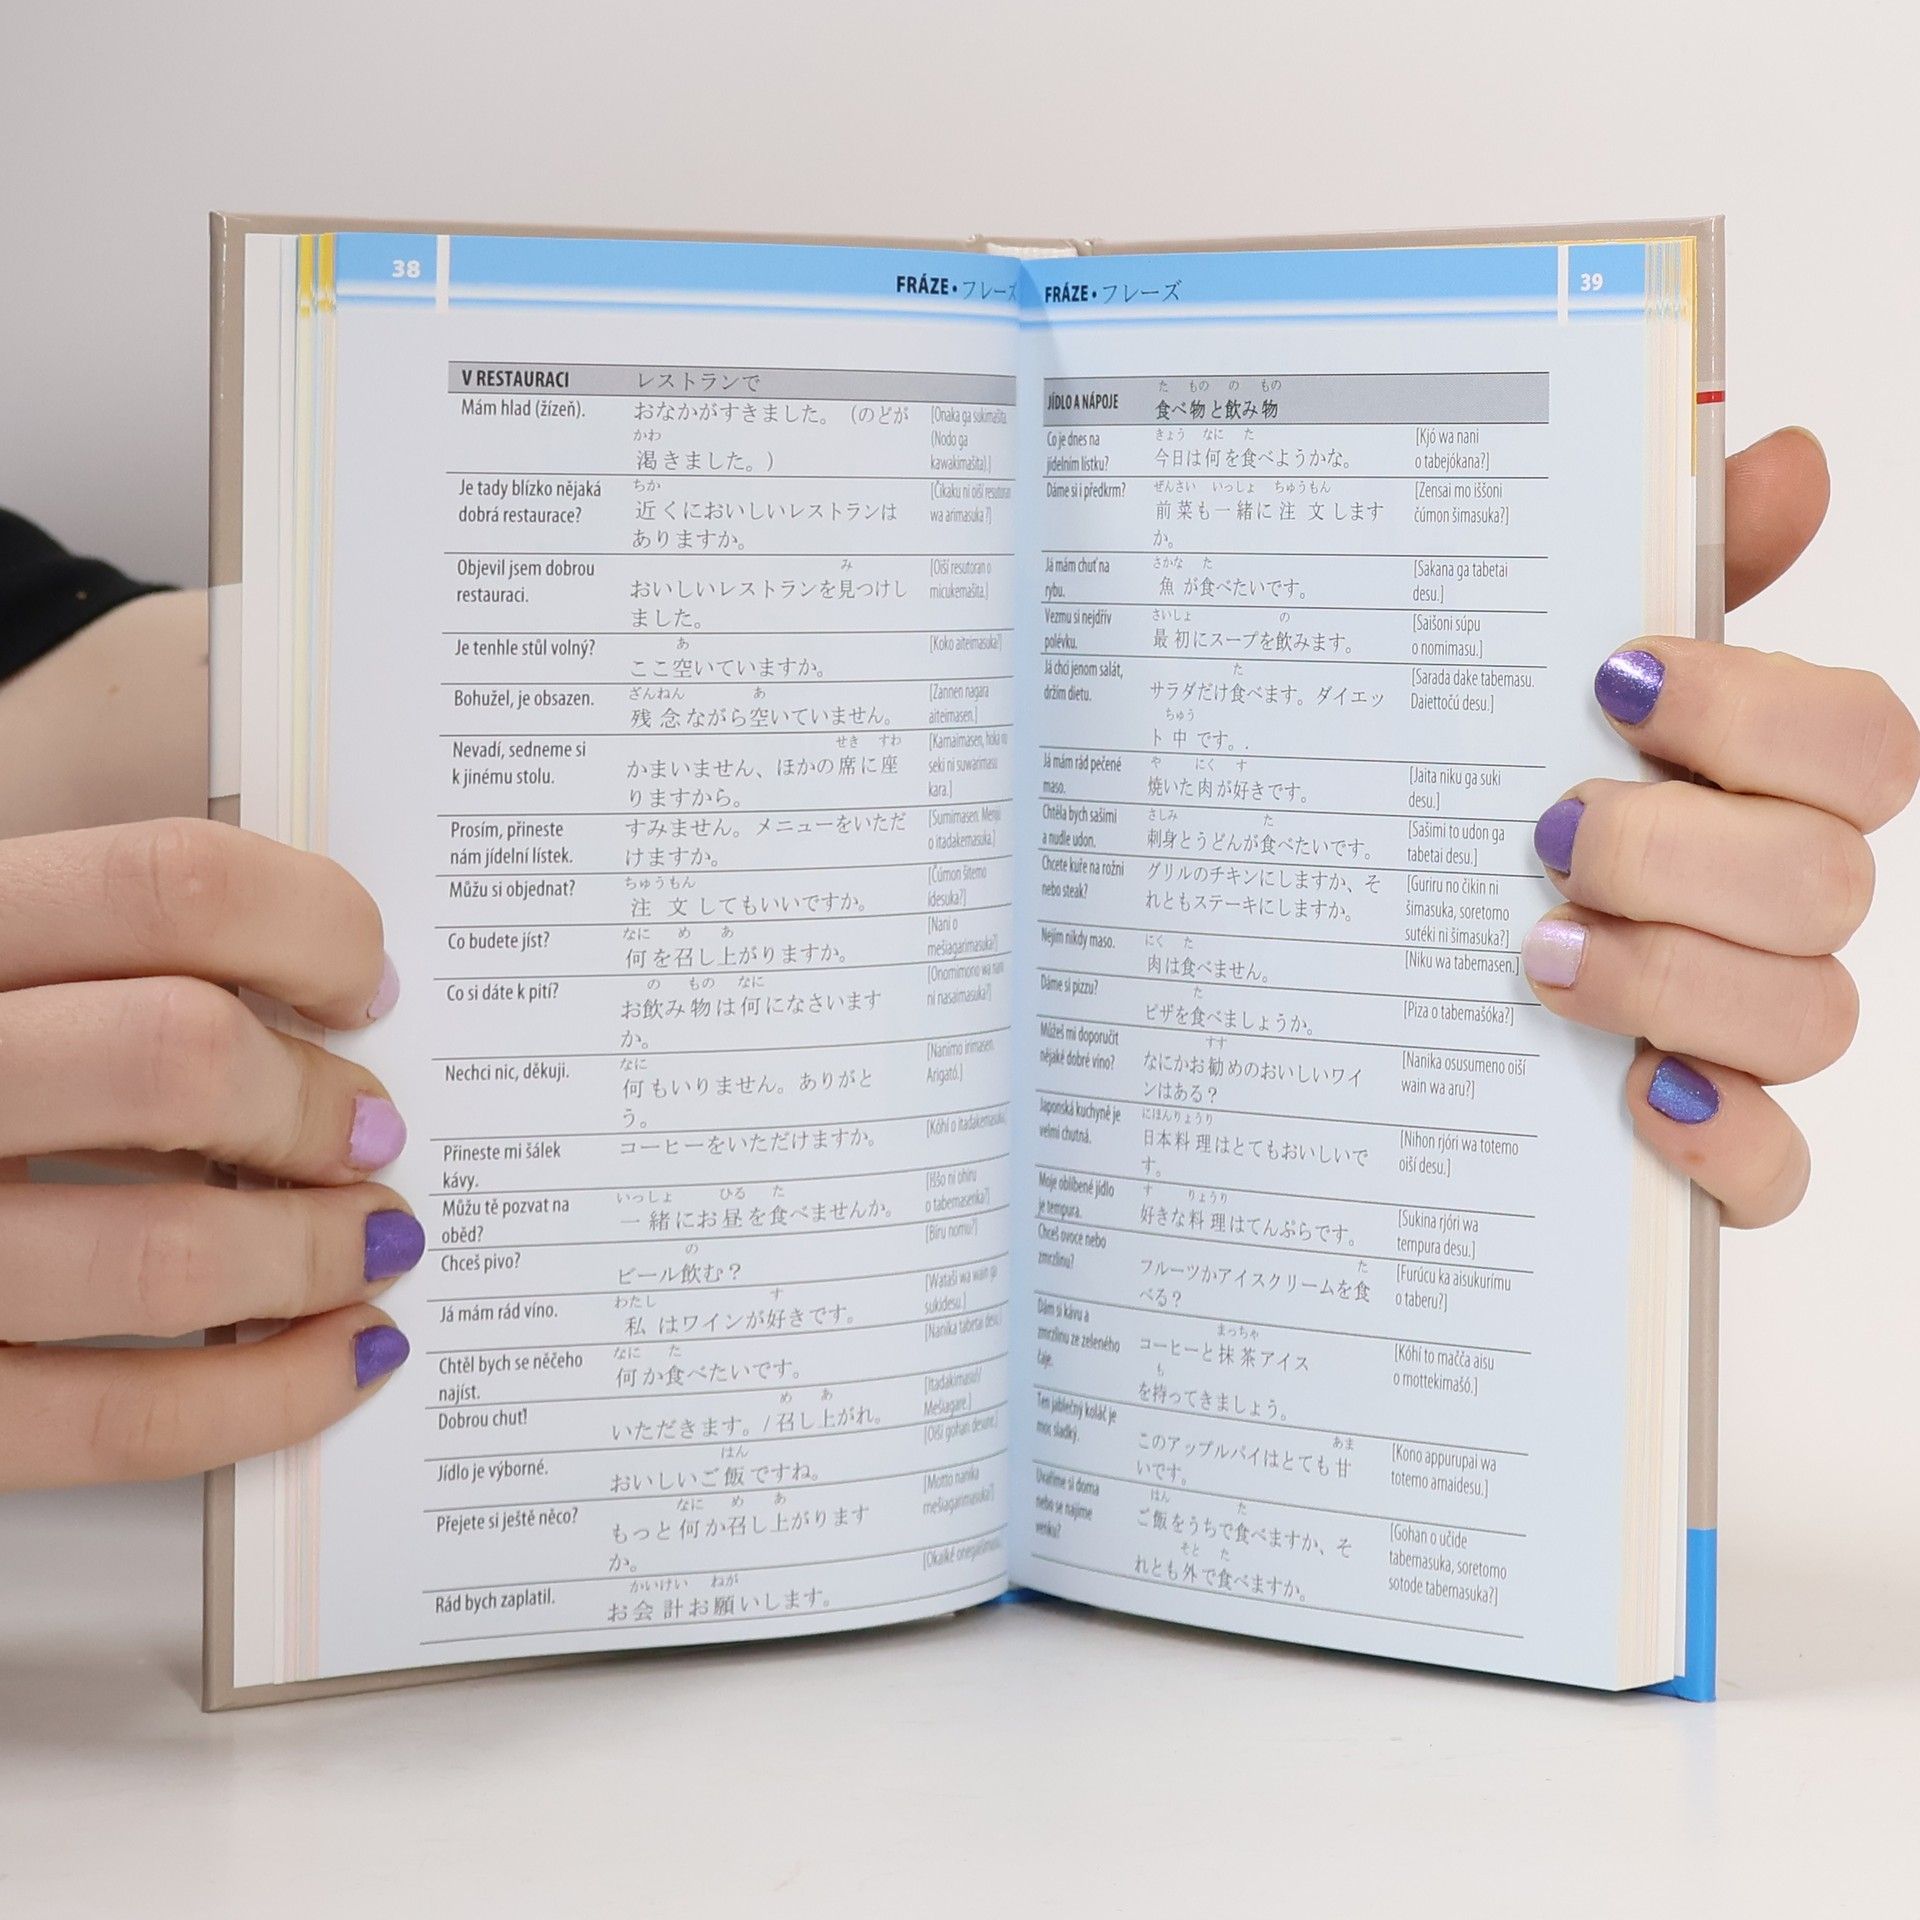 38
FRÁZE • フレーズ
V RESTAURACI レストランで
Mám hlad (žízeň). おなかがすきました。（のどが [Onaka ga sukimašita.
かわ (Nodo ga
渇きました。） kawakimašita).]
Je tady blízko nějaká ちか [Čikaku ni oiší resutoran
dobrá restaurace? 近くにおいしいレストランは wa arimasuka?]
ありますか。
Objevil jsem dobrou み [Oiší resutoran o
restauraci. おいしいレストランを見つけし micukemašita.]
ました。
Je tenhle stůl volný? あ [Koko aiteimasuka?]
ここ空いていますか。
Bohužel, je obsazen. ざんねん あ [Zannen nagara
残念ながら空いていません。 aiteimasen.]
Nevadí, sedneme si せき すわ [Kamaimasen, hoka no
k jinému stolu. かまいません、ほかの席に座 seki ni suwarimasu
りますから。 kara.]
Prosím, přineste すみません。メニューをいただ [Sumimasen. Menjú
nám jídelní lístek. けますか。 o itadakemasuka.]
Můžu si objednat? ちゅうもん [Čúmon šitemo
注文してもいいですか。 idesuka?]
Co budete jíst? なに め あ [Nani o
何を召し上がりますか。 mešiagarimasuka?]
Co si dáte k pití? の もの なに [Onomimono wa nani
お飲み物は何になさいます ni nasaimasuka?]
か。
Nechci nic, děkuji. なに [Nanimo irimasen.
何もいりません。ありがと Arigató.]
う。
Přineste mi šálek コーヒーをいただけますか。 [Kóhí o itadakemasuka.
kávy.
Můžu tě pozvat na いっしょ ひる た [Iššo ni ohiru
oběd? 一緒にお昼を食べませんか。 o tabemasenka?]
Chceš pivo? の [Bíru nomu?]
ビール飲む？
Já mám rád víno. わたし す [Wataši wa wain ga
私はワインが好きです。 sukidesu.]
Chtěl bych se něčeho なに た [Nanika tabetai desu.]
najíst. 何か食べたいです。
Dobrou chuť! め あ [Itadakimasu!/
いただきます。/召し上がれ。 Mešiagare.]
Jídlo je výborné. はん [Oiší gohan desune.]
おいしいご飯ですね。
Přejete si ještě něco? なに め あ [Motto nanika
もっと何か召し上がります mešiagarimasuka?]
か。
Rád bych zaplatil. かいけい ねが
お会計お願いします。
FRÁZE • フレーズ
39
た もの の もの
JÍDLO A NÁPOJE 食べ物と飲み物
Co je dnes na きょう なに た [Kjó wa nani
jídelním lístku? 今日は何を食べようかな。 o tabejókana?]
Dáme si i předkrm? ぜんさい いっしょ ちゅうもん [Zensai mo iššoni
前菜も一緒に注文します čúmon šimasuka?]
か。
Já mám chuť na さかな た [Sakana ga tabetai
rybu. 魚が食べたいです。 desu.]
Vezmu si nejdřív さいしょ の [Saišoni súpu
polévku. 最初にスープを飲みます。 o nomimasu.]
Já chci jenom salát, た [Sarada dake tabemasu.
držím dietu. サラダだけ食べます。ダイエッ Daiettočú desu.]
ちゅう
ト中です。.
Já mám rád pečené や にく す [Jaita niku ga suki
maso. 焼いた肉が好きです。 desu.]
Chtěla bych sašimi さしみ た [Sašimi to udon ga
a nudle udon. 刺身とうどんが食べたいです。 tabetai desu.]
Chcete kuře na rožni グリルのチキンにしますか、そ [Guriru no čikin ni
nebo steak? れともステーキにしますか。 šimasuka, soretomo
sutéki ni šimasuka?]
Nejím nikdy maso. にく た [Niku wa tabemasen.]
肉は食べません。
Dáme si pizzu? た [Piza o tabemašóka?]
ピザを食べましょうか。
Můžeš mi doporučit すす [Nanika osusumeno oiší
nějaké dobré víno? なにかお勧めのおいしいワイ wain wa aru?]
ンはある？
Japonská kuchyně je にほんりょうり [Nihon rjóri wa totemo
velmi chutná. 日本料理はとてもおいしいで oiší desu.]
す。
Moje oblíbené jídlo す りょうり [Sukina rjóri wa
je tempura. 好きな料理はてんぷらです。 tempura desu.]
Chceš ovoce nebo た [Furúcu ka aisukurímu
zmrzlinu? フルーツかアイスクリームを食 o taberu?]
べる？
Dám si kávu a まっちゃ [Kóhí to mačča aisu
zmrzlinu ze zeleného コーヒーと抹茶アイス o mottekimašó.]
čaje. も
を持ってきましょう。
Ten jablečný koláč je あま [Kono appurupai wa
moc sladký. このアップルパイはとても甘 totemo amaidesu.]
いです。
Uvaříme si doma はん た [Gohan o učide
nebo se najíme ご飯をうちで食べますか、そ tabemasuka, soretomo
venku? そと た sotode tabemasuka?]
れとも外で食べますか。